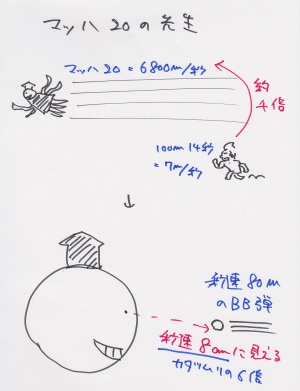 マッハ20の先生
マッハ20 = 6800m/秒
約
4倍
100m 14秒
= 7m/秒
↓
秒速80m
のBB弾
秒速8cmに見える
カタツムリの6倍